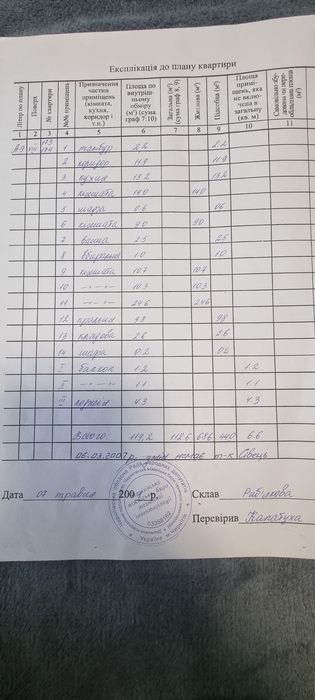 Експлікація до плану квартири
Літер по плану | Поверх | № квартири | №№ приміщень | Призначення частин приміщень (кімната, кухня, коридор і т.п.) | Площа по внутрішньому обміру (м²) (сума граф 7;10) | Загальна (м²) (сума граф 8, 9) | Житлова (м²) | Підсобна (м²) | Площа приміщень, яка не включена в загальну (кв. м) | Самовільно збудована чи переобладнана площа (м²)
1 2 3 4 5 6 7 8 9 10 11
А9 VIII 173 174 1 тамбур 2.2 2.2
2 коридор 11.9 11.9
3 кухня 13.2 13.2
4 кімната 14.0 14.0
5 шафа 0.6 0.6
6 кімната 9.0 9.0
7 ванна 2.5 2.5
8 вбиральня 1.0 1.0
9 кімната 10.7 10.7
10 -"-"- 10.3 10.3
11 -"-"- 24.6 24.6
12 пральня 9.8 9.8
13 кладова 2.6 2.6
14 шафа 0.2 0.2
I балкон 1.2 1.2
II -"-"- 1.1 1.1
III лоджія 4.3 4.3
Всього: 119,2 112.6 68.6 44.0 6.6
06.03.2007р. змін немає т-к
Дата 07 травня 200 р. Склав
Перевірив Капатуха
03358162